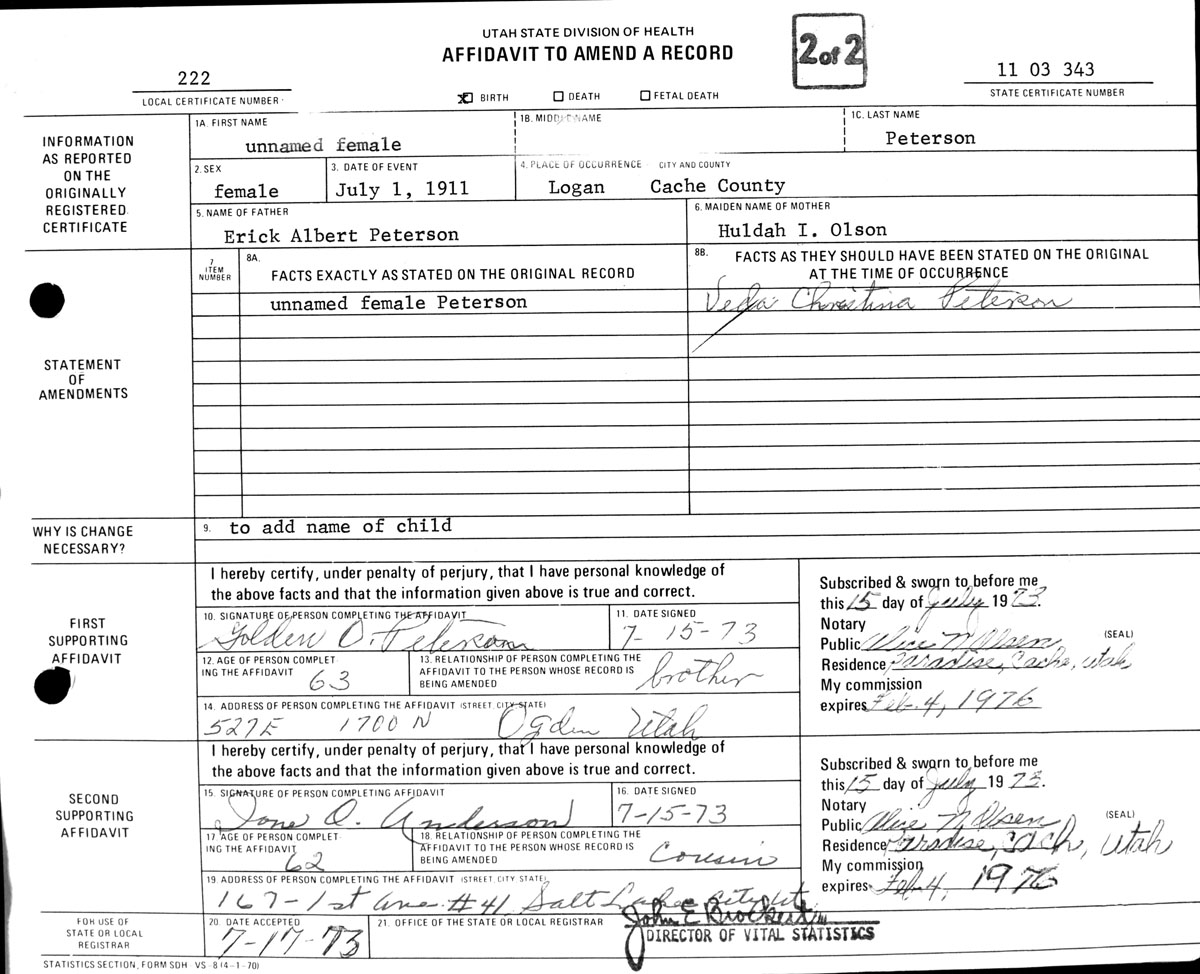 UTAH STATE DIVISION OF HEALTH
AFFIDAVIT TO AMEND A RECORD
2 of 2
222
LOCAL CERTIFICATE NUMBER
11 03 343
STATE CERTIFICATE NUMBER
X BIRTH DEATH FETAL DEATH
INFORMATION AS REPORTED ON THE ORIGINALLY REGISTERED CERTIFICATE
1A. FIRST NAME 1B. MIDDLE NAME 1C. LAST NAME
unnamed female Peterson
2. SEX 3. DATE OF EVENT 4. PLACE OF OCCURRENCE CITY AND COUNTY
female July 1, 1911 Logan Cache County
5. NAME OF FATHER 6. MAIDEN NAME OF MOTHER
Erick Albert Peterson Huldah I. Olson
STATEMENT OF AMENDMENTS
7 ITEM NUMBER
8A. FACTS EXACTLY AS STATED ON THE ORIGINAL RECORD
8B. FACTS AS THEY SHOULD HAVE BEEN STATED ON THE ORIGINAL
AT THE TIME OF OCCURRENCE
unnamed female Peterson Veda Christina Peterson
WHY IS CHANGE NECESSARY?
9. to add name of child
FIRST SUPPORTING AFFIDAVIT
I hereby certify, under penalty of perjury, that I have personal knowledge of
the above facts and that the information given above is true and correct.
10. SIGNATURE OF PERSON COMPLETING THE AFFIDAVIT 11. DATE SIGNED
Golden O. Peterson 7-15-73
12. AGE OF PERSON COMPLETING THE AFFIDAVIT 63
13. RELATIONSHIP OF PERSON COMPLETING THE
AFFIDAVIT TO PERSON WHOSE RECORD IS
BEING AMENDED brother
14. ADDRESS OF PERSON COMPLETING THE AFFIDAVIT (STREET, CITY, STATE)
527 E 1700 N Ogden Utah
Subscribed & sworn to before me
this 15 day of July 1973.
Notary
Public Alice N. Olsen (SEAL)
Residence Paradise, Cache, Utah
My commission
expires Feb. 4, 1976
SECOND SUPPORTING AFFIDAVIT
I hereby certify, under penalty of perjury, that I have personal knowledge of
the above facts and that the information given above is true and correct.
15. SIGNATURE OF PERSON COMPLETING AFFIDAVIT 16. DATE SIGNED
Ione O. Anderson 7-15-73
17. AGE OF PERSON COMPLETING THE AFFIDAVIT 62
18. RELATIONSHIP OF PERSON COMPLETING THE
AFFIDAVIT TO THE PERSON WHOSE RECORD IS
BEING AMENDED Cousin
19. ADDRESS OF PERSON COMPLETING THE AFFIDAVIT (STREET, CITY, STATE)
167-1st Ave. #41, Salt Lake City, Ut
Subscribed & sworn to before me
this 15 day of July 1973.
Notary
Public Alice N. Olsen (SEAL)
Residence Paradise, Cach, Utah
My commission
expires Feb. 4, 1976
FOR USE OF STATE OR LOCAL REGISTRAR
20. DATE ACCEPTED 21. OFFICE OF THE STATE OR LOCAL REGISTRAR
7-17-73 John E Brockert
DIRECTOR OF VITAL STATISTICS
STATISTICS SECTION, FORM SDH - VS - 8 (4-1-70)